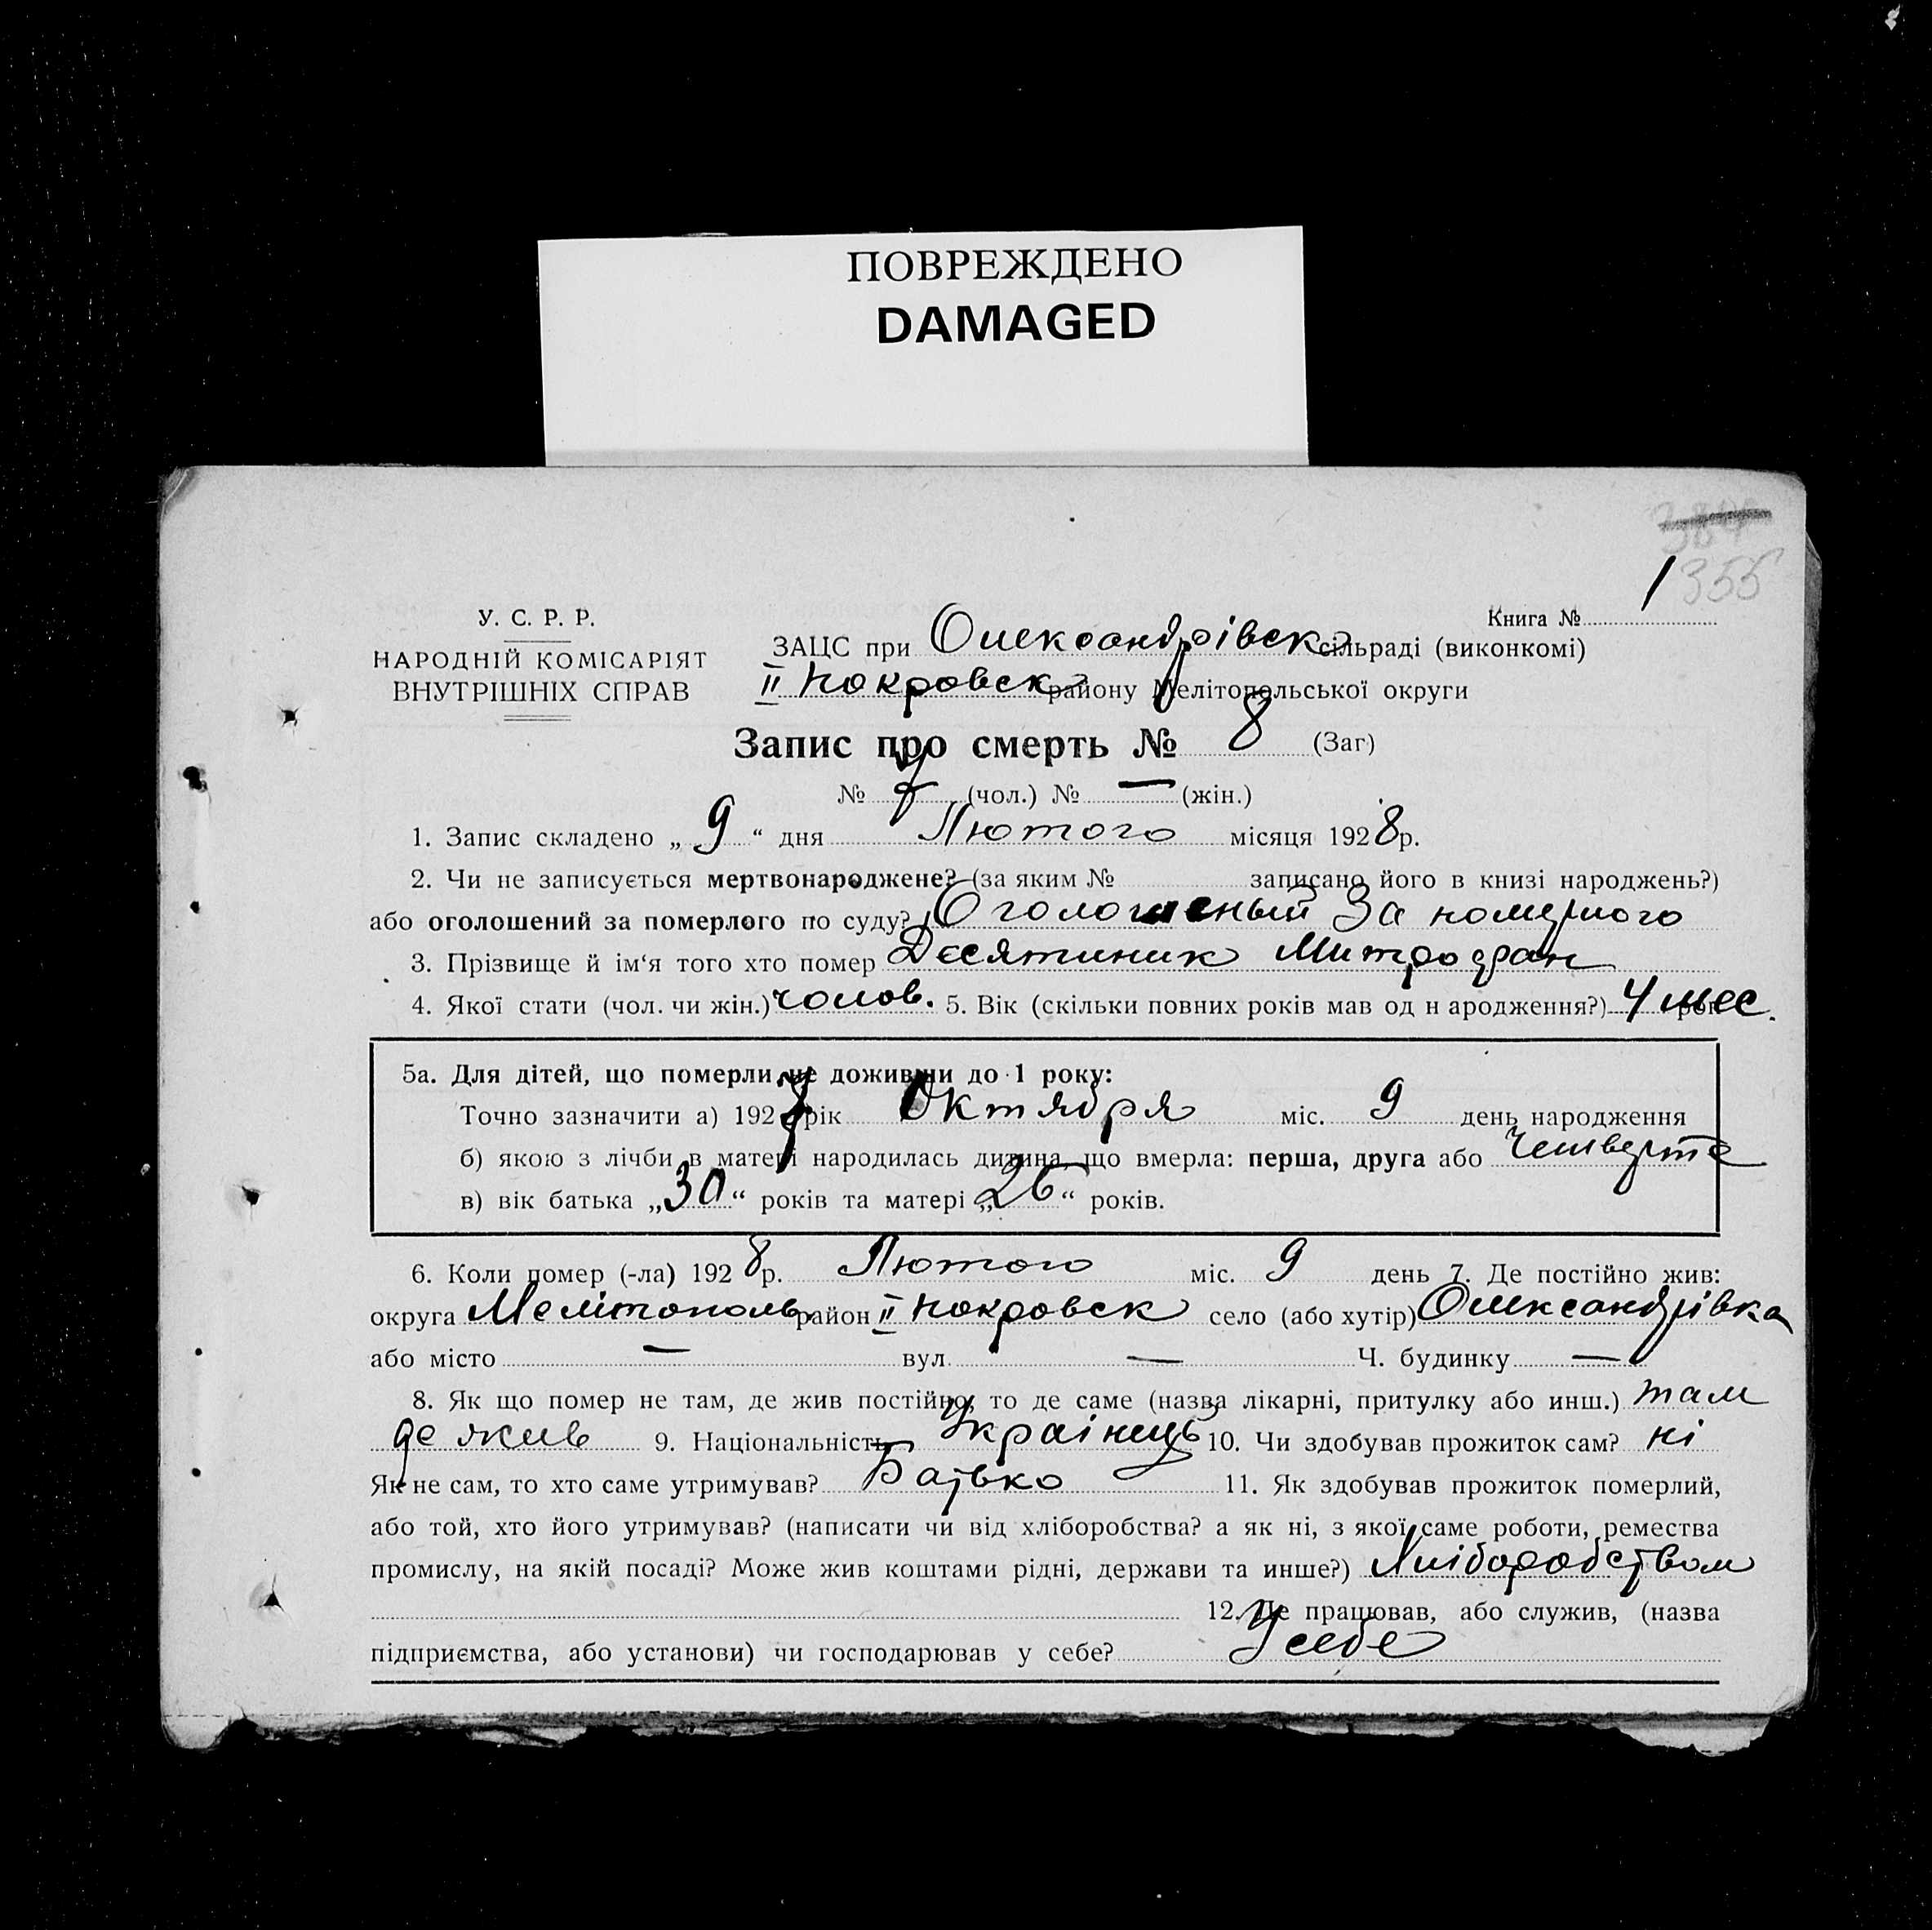 ПОВРЕЖДЕНО
DAMAGED
384
1 355
У. С. Р. Р.
НАРОДНІЙ КОМІСАРІЯТ
ВНУТРІШНІХ СПРАВ
Книга №
ЗАЦС при Олександрівск сільраді (виконкомі)
II Покровск району Мелітопольської округи
Запис про смерть № 8 (Заг)
№ 7 (чол.) № — (жін.)
1. Запис складено „ 9 “ дня Лютого місяця 1928р.
2. Чи не записується мертвонароджене? (за яким № записано його в книзі народжень?)
або оголошений за померлого по суду? Оголошеный За померлого
3. Прізвище й ім‘я того хто помер Десятиник Митрофан
4. Якої стати (чол. чи жін.) чолов. 5. Вік (скільки повних років мав од н ародження?) 4 мес.
5а. Для дітей, що померли не доживши до 1 року:
Точно зазначити а) 1927 рік Октября міс. 9 день народження
б) якою з лічби в матері народилась дитина, що вмерла: перша, друга або четверта
в) вік батька „30“ років та матері „26“ років.
6. Коли помер (-ла) 1928р. Лютого міс. 9 день 7. Де постійно жив:
округа Мелітополь. район II Покровск село (або хутір) Олександрівка
або місто — вул. — Ч. будинку —
8. Як що помер не там, де жив постійно, то де саме (назва лікарні, притулку або инш.) там
де жив 9. Національність Українець 10. Чи здобував прожиток сам? ні
Як не сам, то хто саме утримував? Батько 11. Як здобував прожиток померлий,
або той, хто його утримував? (написати чи від хліборобства? а як ні, з якої саме роботи, ремества
промислу, на якій посаді? Може жив коштами рідні, держави та инше?) Хліборобством
12. Де працював, або служив, (назва
підприємства, або установи) чи господарював у себе? У себе